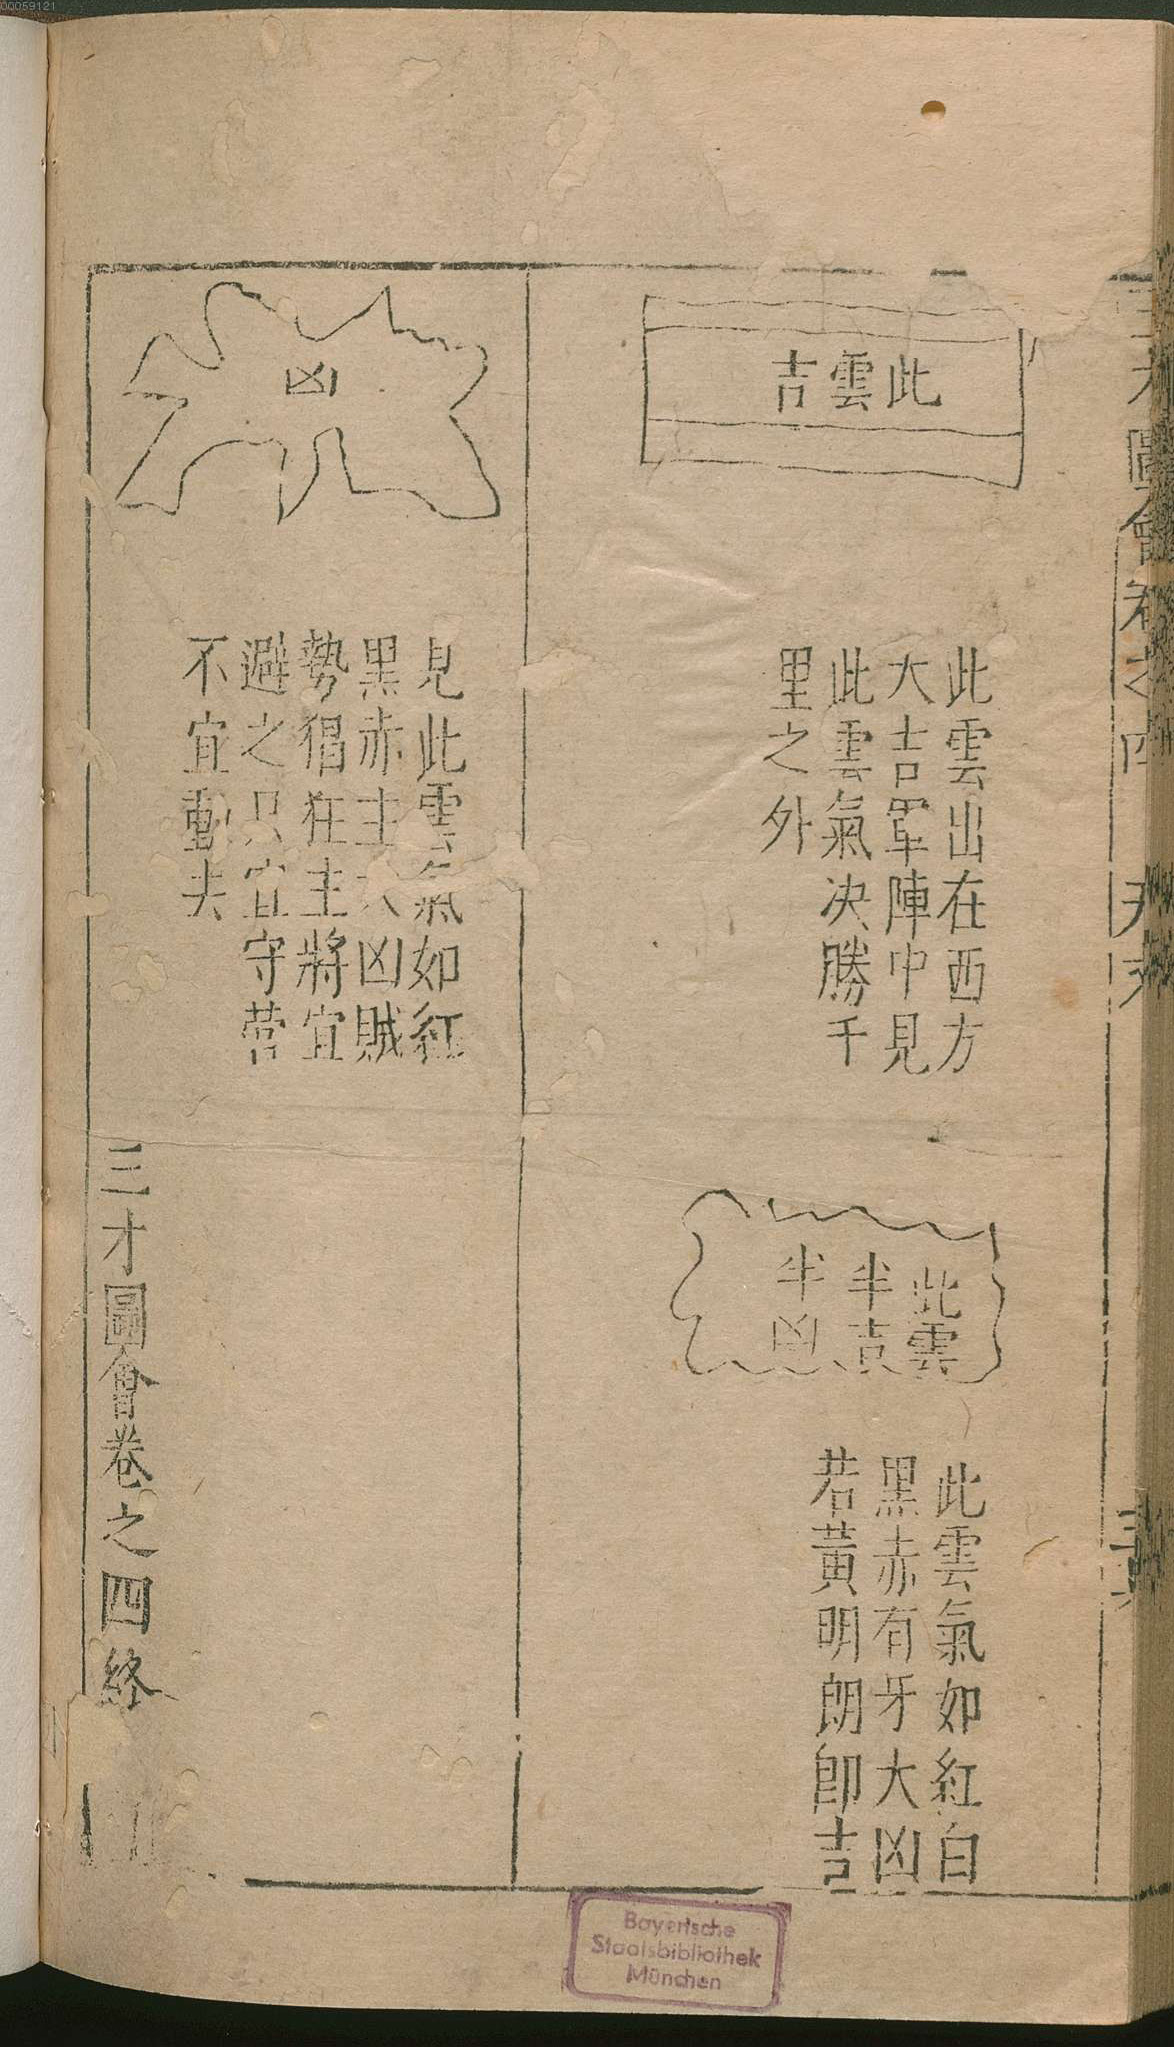 00059121
此雲吉
此雲出在西方
大吉軍陣中見
此雲氣决勝千
里之外
此雲
半吉
半凶
此雲氣如紅白
黑赤有牙大凶
若黃明朗即吉
凶
見此雲氣如紅
黑赤主大凶賊
勢猖狂主將宜
避之只宜守營
不宜動去
三才圖會卷之四終
圖會卷之四
Bayerische
Staatsbibliothek
München